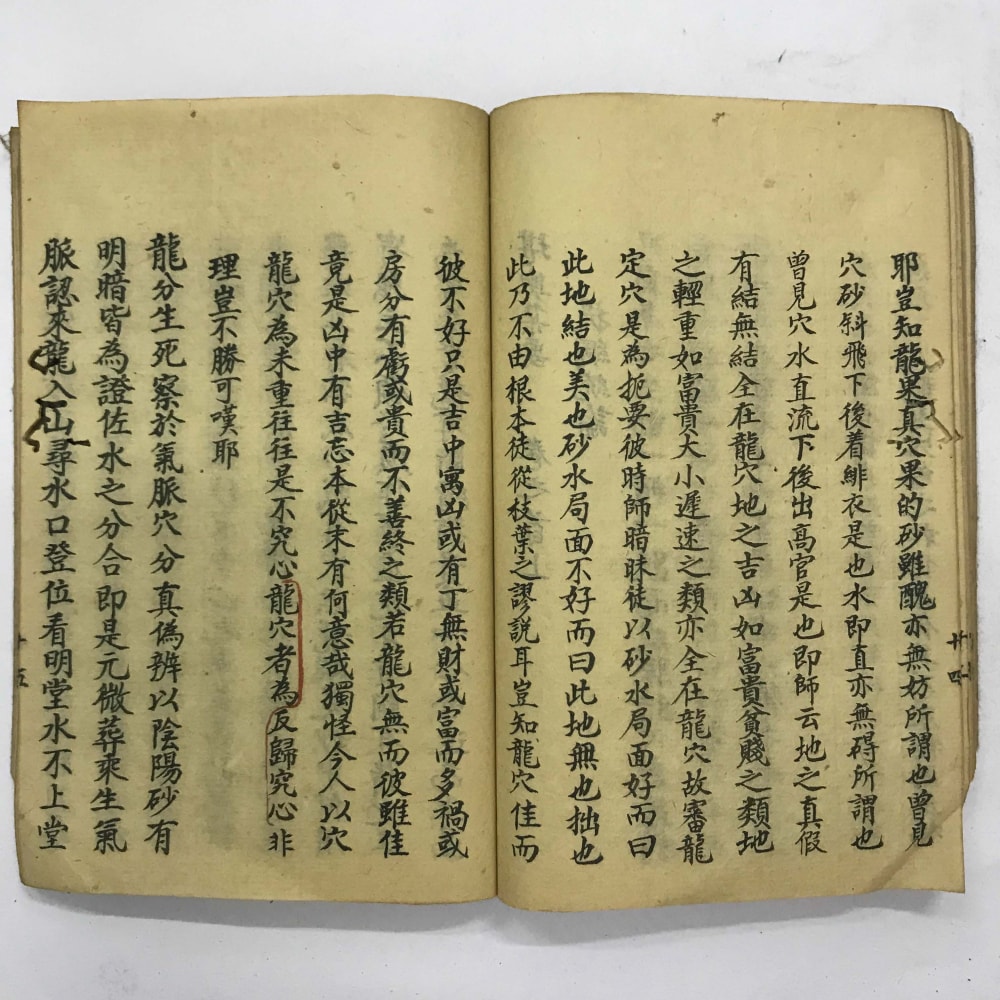 耶豈知龍果真穴果的砂雖醜亦無妨所謂也曾見
穴砂斜飛下後着緋衣是也水即直亦無碍所謂也
曾見穴水直流下後出高官是也即師云地之真假
有結無結全在龍穴地之吉凶如富貴貧賤之類地
之輕重如富貴大小遲速之類亦全在龍穴故審龍
定穴是為扼要彼時師暗昧徒以砂水局面好而曰
此地結也美也砂水局面不好而曰此地無也拙也
此乃不由根本徒從枝葉之謬説耳豈知龍穴佳而
廿四
彼不好只是吉中寓凶或有丁無財或富而多禍或
房分有虧或貴而不善終之類若龍穴無而彼雖佳
竟是凶中有吉忘本從末有何意哉獨怪今人以穴
龍穴為末重往往是不究心龍穴者為反歸究心非
理豈不勝可嘆耶
龍分生死察於氣脈穴分真偽辨以陰陽砂有
明暗皆為證佐水之分合即是元微葬乘生氣
脈認來龍入山尋水口登位看明堂水不上堂